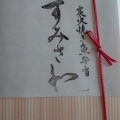 炭火焼き魚弁当
すみさわ